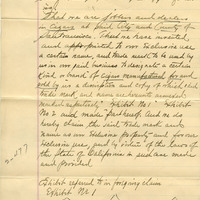 That we are jobbers and dealers
in Cigars at said City and County of
San Francisco. That we have invented,
and appropriated to our exclusive use
a certain name, and trade mark to be used by
us in our said business to designate a certain
kind or brand of cigar manufactured for and
sold by us a description and copy of which said
trade mark and name are hereunto annexed
marked respectively "Exhibit No 1" "Exhibit
No 2 and made part hereof And we do
hereby claim the said trade mark and
name as our exclusive property and for our
exclusive use, and by virtue of the laws of
the State of California in such case made
and provided
Exhibit referred to in foregoing claim
Exhibit No 1